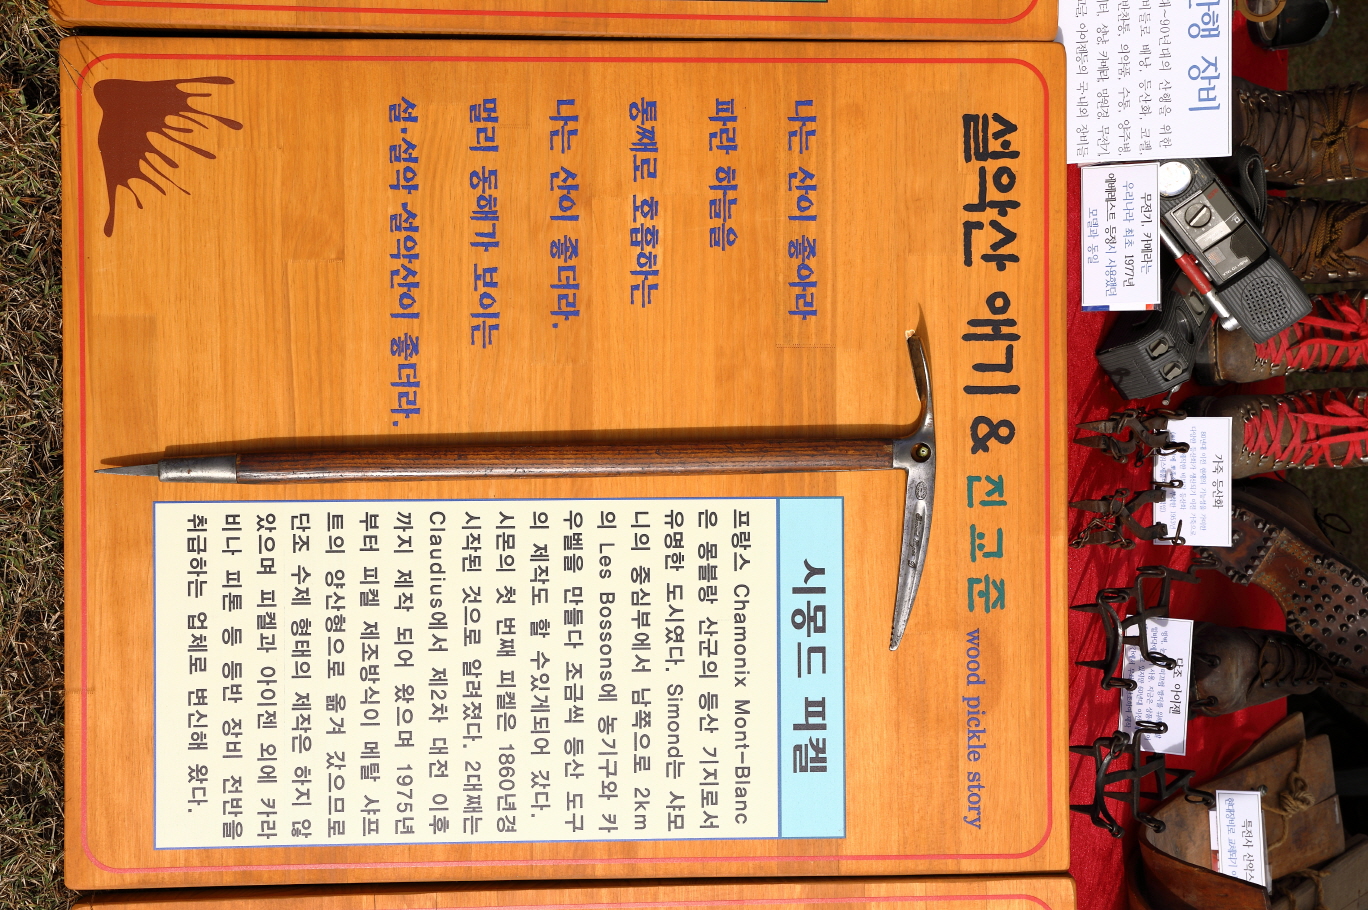 설악산 얘기 & 진교준 wood pickle story
나는 산이 좋아라
파란 하늘을
통째로 호흡하는
나는 산이 좋더라.
멀리 동해가 보이는
설·설악·설악산이 좋더라.
시몽드 피켈
프랑스 Chamonix Mont-Blanc
은 몽블랑 산군의 등산 기지로서
유명한 도시였다. Simond는 샤모
니의 중심부에서 남쪽으로 2km
의 Les Bossons에 농기구와 카
우벨을 만들다 조금씩 등산 도구
의 제작도 할 수있게되어 갔다.
시몬의 첫 번째 피켈은 1860년경
시작된 것으로 알려졌다. 2대째는
Claudius에서 제2차 대전 이후
까지 제작 되어 왔으며 1975년
부터 피켈 제조방식이 메탈 샤프
트의 양산형으로 옮겨 갔으므로
단조 수제 형태의 제작은 하지 않
았으며 피켈과 아이젠 외에 카라
비나 피톤 등 등반 장비 전반을
취급하는 업체로 변신해 왔다.
산행 장비
대~90년대의 산행을 위한
비들로 배낭, 등산화, 코펠,
반찬통, 의약품, 수통, 양주병,
터, 상냥, 카메라, 망원경, 무전기,
고글, 아이젠등의 국·내외 장비들
무전기, 카메라는
우리나라 최초 1977년
에베레스트 등정시 사용했던
모델과 동일
가죽 등산화
단조 아이젠
특전사 산악스